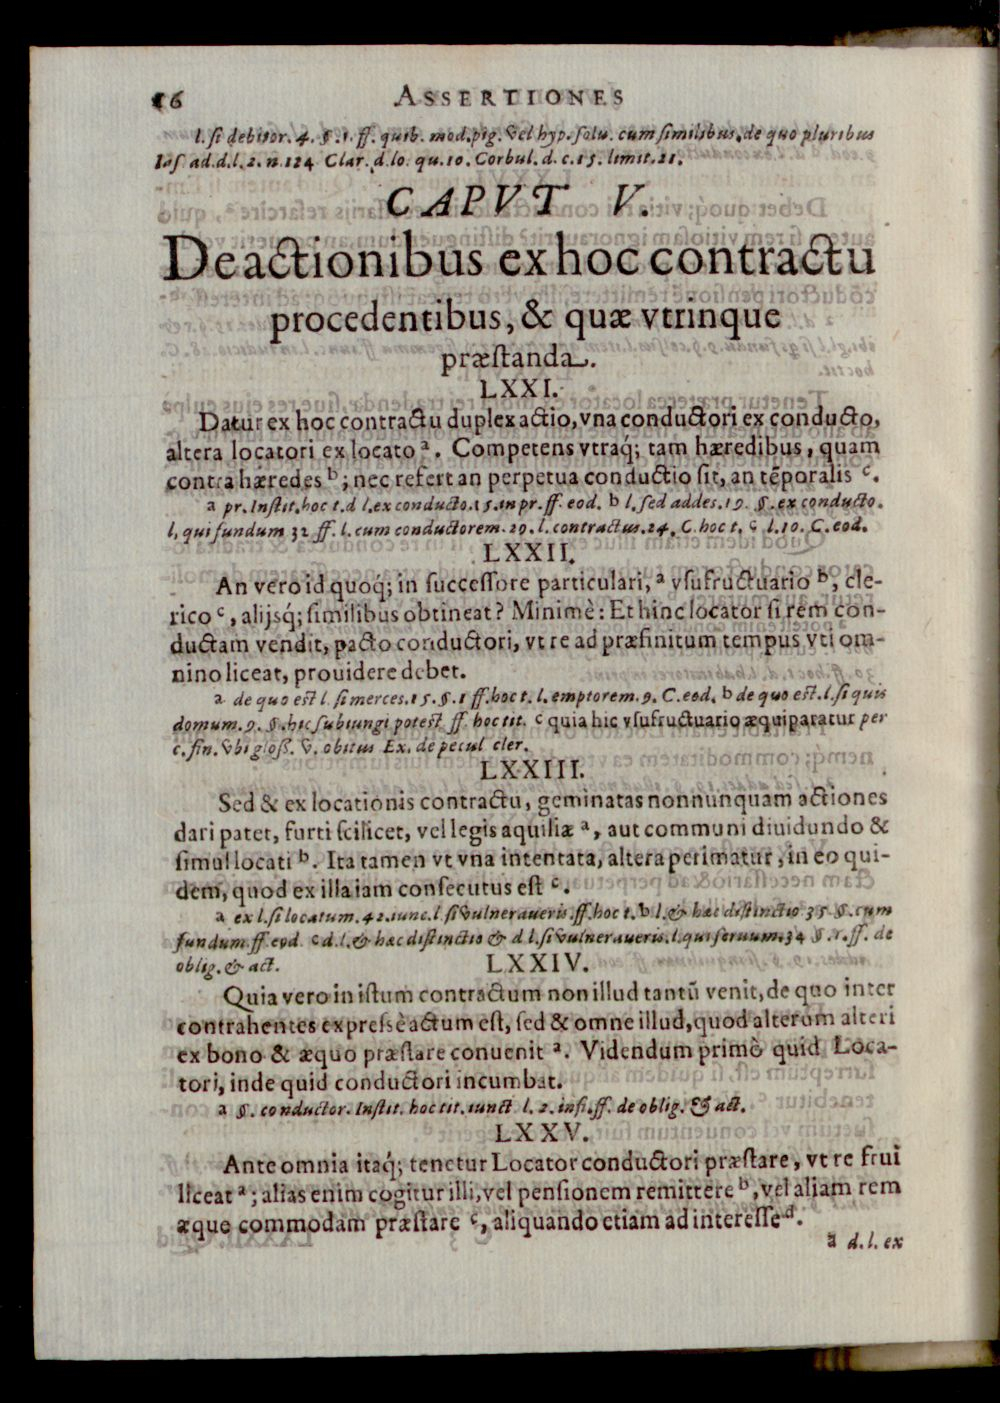 16 ASSERTIONES
l. si debitor. 4. §. 1. ff. quib. mod. pig. vel hyp. solu. cum similibus, de quo pluribus
Ias ad. d. l. 2. n. 124 Clar. d. lo. qu. 10. Corbul. d. c. 15. limit. 21.
CAPVT V.
De actionibus ex hoc contractu
procedentibus, & quæ vtrinque
præstanda.
LXXI.
Datur ex hoc contractu duplex actio, vna conductori ex conducto,
altera locatori ex locato ᵃ. Competens vtraq́; tam hæredibus, quam
contra hæredes ᵇ; nec refert an perpetua conductio sit, an tẽporalis ᶜ.
a pr. Instit. hoc t. d l. ex conducto. 15. in pr. ff. eod. b l. sed addes. 19. §. ex conducto.
l, qui fundum 32 ff. l. cum conductorem. 29. l. contractus. 24. C. hoc t. c l. 10. C. eod.
LXXII.
An vero id quoq́; in successore particulari, ᵃ vsufructuario ᵇ, cle-
rico ᶜ, alijsq́; similibus obtineat? Minimè: Et hinc locator si rem con-
ductam vendit, pacto conductori, vt re ad præfinitum tempus vti om-
nino liceat, prouidere debet.
a de quo est l. si merces. 15. §. 1 ff. hoc t. l. emptorem. 9. C. eod. b de quo est. l. si quis
domum. 9. §. hic subiungi potest ff. hoc tit. c quia hic vsufructuario æquiparatur per
c. fin. vbi gloss. v. obitus Ex. de pecul cler.
LXXIII.
Sed & ex locationis contractu, geminatas nonnunquam actiones
dari patet, furti scilicet, vel legis aquiliæ ᵃ, aut communi diuidundo &
simul locati ᵇ. Ita tamen vt vna intentata, altera perimatur, in eo qui-
dem, quod ex illa iam consecutus est ᶜ.
a ex l. si locatum. 42. iunc. l. si vulneraueris. ff. hoc t. b l. & hæc distinctio 35 §. cum
fundum. ff. eod. c d. l. & hæc distinctio & d l. si vulneraueris. l. qui seruum. 34 §. 1. ff. de
oblig. & act. LXXIV.
Quia vero in istum contractum non illud tantũ venit, de quo inter
contrahentes expressè actum est, sed & omne illud, quod alterum alteri
ex bono & æquo præstare conuenit ᵃ. Videndum primò quid Loca-
tori, inde quid conductori incumbat.
a §. conductor. Instit. hoc tit. iunct l. 2. in fi. ff. de oblig. & act.
LXXV.
Ante omnia itaq́; tenetur Locator conductori præstare, vt re frui
liceat ᵃ; alias enim cogitur illi, vel pensionem remittere ᵇ, vel aliam rem
æque commodam præstare ᶜ, aliquando etiam ad interesse ᵈ.
a d. l. ex